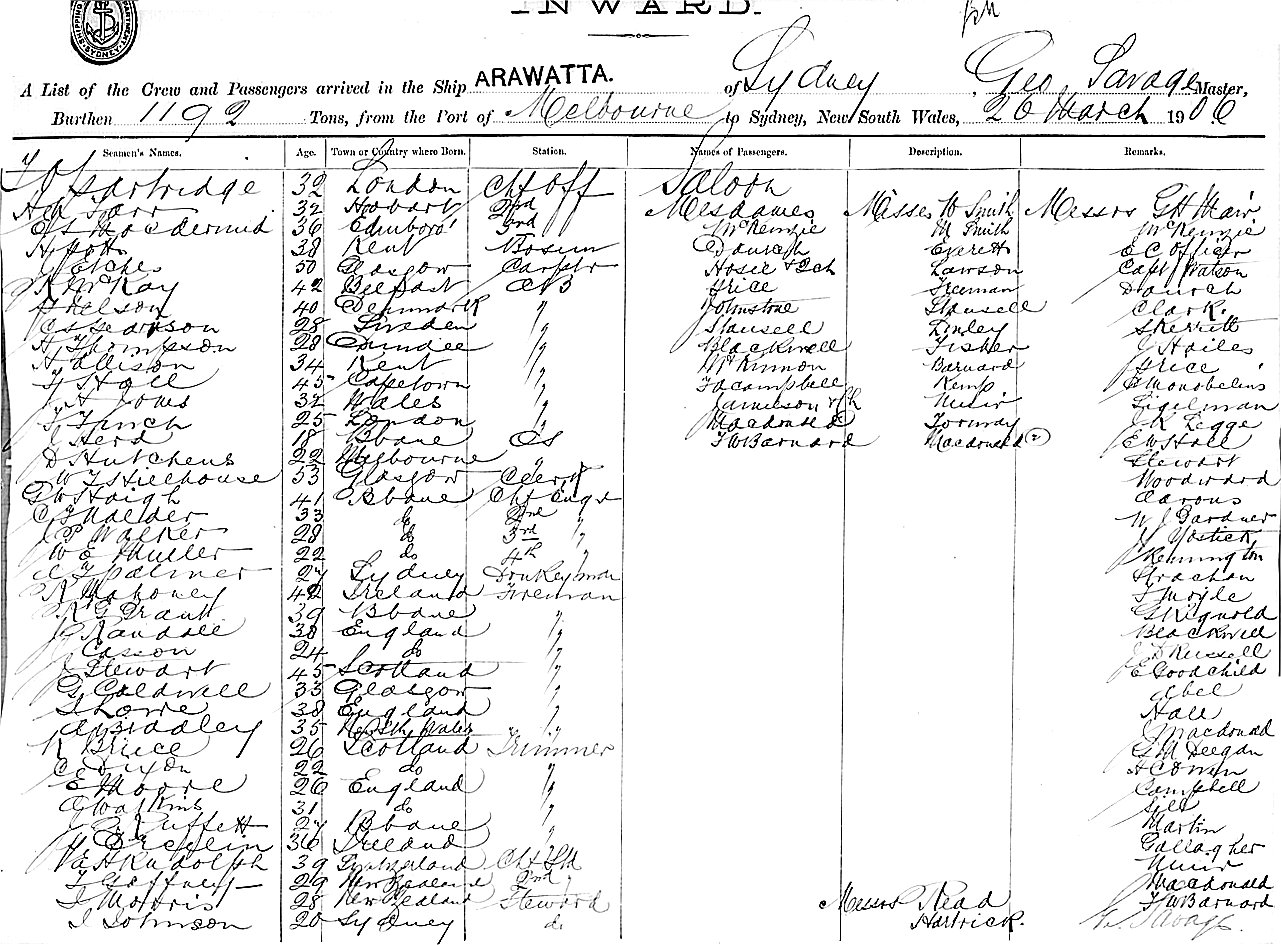 INWARD.
SHIPPING DEPARTMENT SYDNEY
A List of the Crew and Passengers arrived in the Ship ARAWATTA. of Sydney Geo Savage Master,
Burthen 1192 Tons, from the Port of Melbourne to Sydney, New South Wales, 26 March 1906
Seamen's Names. Age. Town or Country where Born. Station. Names of Passengers. Description. Remarks.
Hartridge 32 London Chf Off Saloon
32 Hobart 2nd Mesdames Misses W Smith Messrs G H Mair
Macdermid 36 Edinboro' 3rd McKenzie M Smith McKenzie
38 Kent Bosun Daurch Everett E C Officer
J Etches 50 Glasgow Carptr Hosie & Ch Lawson Capt Watson
R McKay 42 Belfast AB Grice Freeman Daurch
Nelson 40 Denmark " Johnstone Stansell Clark.
28 Sweden " Stansell Linley Skerritt
A Thompson 28 Dundee " Blackwell Fisher J Hailes
A Allison 34 Kent " McKinnon Barnard Grice
F Hall 45 Capetown " Campbell Kemp
A Jones 32 Wales " Jamieson & Ch Muir
F Finch 25 London " Macdonald Tormay Legge
J Herd 18 Bbane OS F W Barnard Macdonald (2) E W Hall
D Hutchens 22 Melbourne " Stewart
Hillhouse 53 Glasgow Clerk Woodward
G W Haigh 41 Bbane Chf Engr Aarons
33 do 2nd " W J Gardner
J P Walker 28 do 3rd " J Yostick
W E Muller 22 do 4th " Rennington
Palmer 27 Sydney Donkeyman Strachan
R Mahoney 42 Ireland Fireman J Moyle
R G Grant 39 Bbane "
J Randall 38 England " Blackwell
Casson 24 do " J D Russell
J Stewart 45 Scotland " E Goodchild
G Caldwell 33 Glasgow " Abel
Lowe 38 England " Hall
A Bradley 35 Nth Wales " J Macdonald
R Brice 26 Scotland Trimmer G M Deegan
C Dixon 22 do "
E Moore 26 England " Campbell
Watkins 31 do "
J Ruffett 27 Bbane " Martin
36 Ireland " Gallagher
Rudolph 39 Switzerland Chf Std Muir
T Gaffney 29 New Zealand 2nd " Macdonald
J Morris 28 New Zealand Steward Messrs Read F W Barnard
J Johnson 20 Sydney do Hartrick. G. Savage